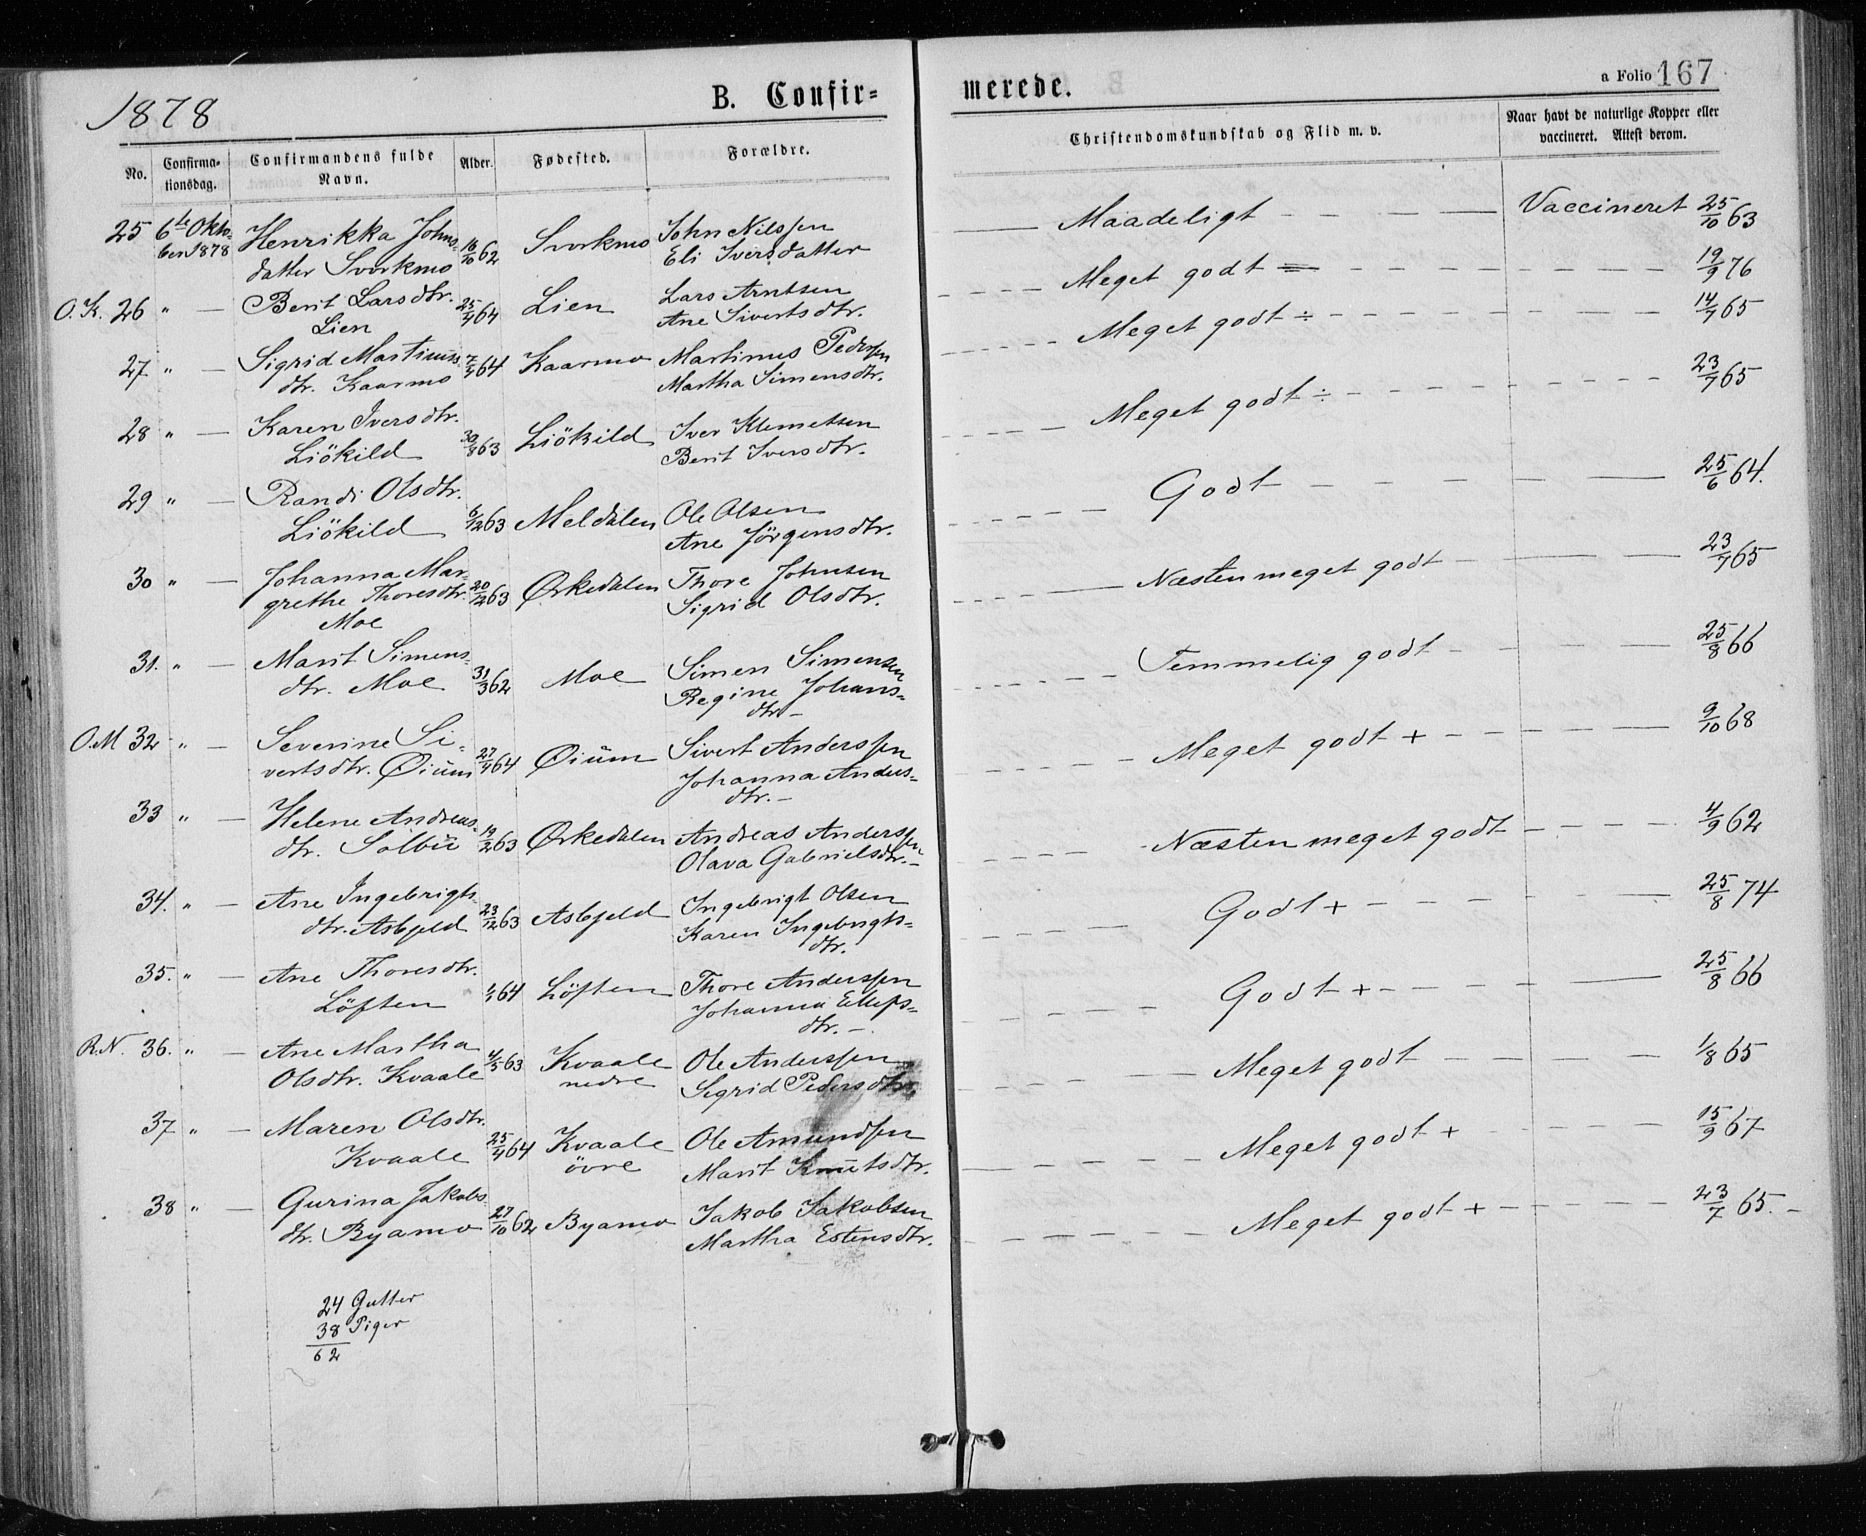 1878
B. Confir=
merede.
a Folio 167
No.
Confirma-
tionsdag.
Confirmandens fulde
Navn.
Alder.
Fødested.
Forældre.
Christendomskundskab og Flid m. v.
Naar havt de naturlige Kopper eller
vaccineret. Attest derom.
25 6te Okto- Henrikka Johns- 16/10 62 Svorkmo John Nilssen — Maadeligt - - - — Vaccineret 25/10 63
ber 1878 datter Svorkmo Eli Iversdatter
O.K. 26 " — Berit Larsdtr. 25/4 64 Lien Lars Arntsen Meget godt = 19/9 76
Lien Ane Sivertsdtr.
27 " — Sigrid Martinus 7/4 64 Kaarmo Martinus Pedersen Meget godt ÷ 14/7 65
dtr. Kaarmo Martha Simensdtr.
28 " — Karen Iversdtr. 30/8 63 Liökild Iver Klemetsen Meget godt ÷ 23/7 65
Liökild Berit Iversdtr.
29 " — Randi Olsdtr. 6/12 63 Meldalen Ole Olsen Godt 25/6 64.
Liökild Ane Jörgensdtr.
30 " — Johanna Mar- 20/12 63 Ørkedalen Thore Johnsen Næsten meget godt 23/7 65
grethe Thoresdtr. Sigrid Olsdtr.
Moe
31. " — Marit Simens- 31/3 62 Moe Simen Simensen Temmelig godt 25/8 66
dtr. Moe Regine Johans-
dtr —
O.M 32 " — Severine Si- 27/4 64 Øium Sivert Anderssen Meget godt + 9/10 68
vertsdtr. Øium Johanna Anders-
dtr. —
33 " — Helene Andreas- 19/2 63 Ørkedalen Andreas Anderssen Næsten meget godt 4/9 62
dtr. Solbu Olava Gabrielsdtr. —
34. " — Ane Ingebrigts 23/12 63 Asbjeld Ingebrigt Olsen Godt + 25/8 74
dtr. Asbjeld Karen Ingebrigts-
dtr.
35. " — Ane Thoresdtr. 64 Löften Thore Anderssen Godt + 25/8 66
Löften Johanna Ellefs-
dtr. —
R.N. 36. " — Ane Martha 4/5 63 Kvaale Ole Anderssen Meget godt 1/8 65
Olsdtr. Kvaale nedre Sigrid Pedersdtr.
37 " — Maren Olsdtr. 25/4 64 Kvaale Ole Amundsen Meget godt + 15/9 67
Kvaale övre Marit Knutsdtr.
38 " — Gurina Jakobs 27/10 62 Byamo Jakob Jakobsen Meget godt + 23/7 65. —
dtr. Byamo Martha Estensdtr.
24 Gutter
38 Piger
62